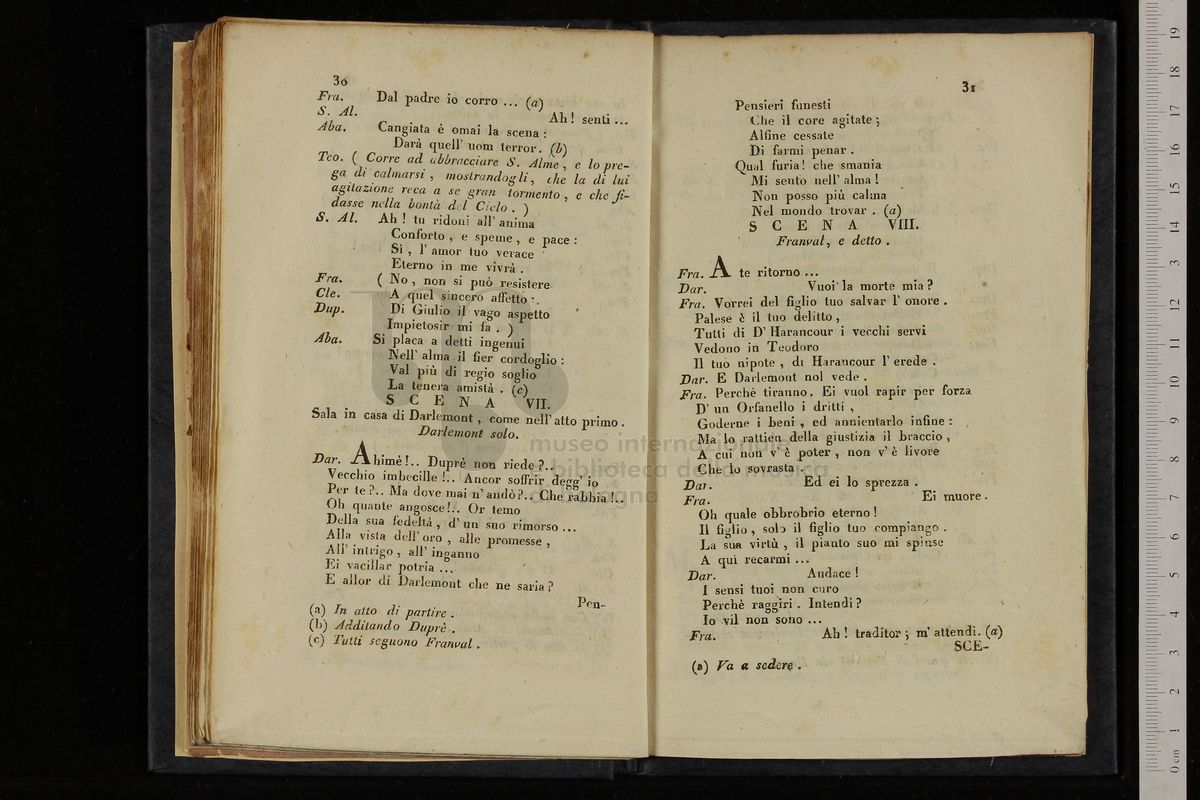 30
Fra. Dal padre io corro ... (a)
S. Al. Ah! senti ...
Aba. Cangiata è omai la scena :
Darà quell' uom terror. (b)
Teo. ( Corre ad abbracciare S. Alme, e lo pre-
ga di calmarsi, mostrandogli, che la di lui
agitazione reca a se gran tormento, e che fi-
dasse nella bontà del Cielo . )
S. Al. Ah ! tu ridoni all' anima
Conforto, e speme, e pace :
Sì, l' amor tuo verace
Eterno in me vivrà .
Fra. ( No, non si può resistere
Cle. A quel sincero affetto .
Dup. Di Giulio il vago aspetto
Impietosir mi fa . )
Aba. Si placa a detti ingenui
Nell' alma il fier cordoglio :
Val più di regio soglio
La tenera amistà . (c)
S C E N A VII.
Sala in casa di Darlemont, come nell' atto primo .
Darlemont solo.
Dar. Ahimè!.. Duprè non riede?..
Vecchio imbecille!.. Ancor soffrir degg' io
Per te?.. Ma dove mai n' andò?.. Che rabbia!..
Oh quante angosce!.. Or temo
Della sua fedeltà, d' un suo rimorso ...
Alla vista dell' oro, alle promesse,
All' intrigo, all' inganno
Ei vacillar potria ...
E allor di Darlemont che ne saria?
Pen-
(a) In atto di partire .
(b) Additando Duprè .
(c) Tutti seguono Franval .
31
Pensieri funesti
Che il core agitate ;
Alfine cessate
Di farmi penar .
Qual furia! che smania
Mi sento nell' alma !
Non posso più calma
Nel mondo trovar . (a)
S C E N A VIII.
Franval, e detto .
Fra. A te ritorno ...
Dar. Vuoi la morte mia ?
Fra. Vorrei del figlio tuo salvar l' onore .
Palese è il tuo delitto,
Tutti di D' Harancour i vecchi servi
Vedono in Teodoro
Il tuo nipote, di Harancour l' erede .
Dar. E Darlemont nol vede .
Fra. Perchè tiranno. Ei vuol rapir per forza
D' un Orfanello i dritti,
Goderne i beni, ed annientarlo infine :
Ma lo rattien della giustizia il braccio,
A cui non v' è poter, non v' è livore
Che lo sovrasta .
Dar. Ed ei lo sprezza .
Fra. Ei muore .
Oh quale obbrobrio eterno !
Il figlio, solo il figlio tuo compiango .
La sua virtù, il pianto suo mi spinse
A qui recarmi ...
Dar. Audace !
I sensi tuoi non curo
Perchè raggiri . Intendi ?
Io vil non sono ...
Fra. Ah ! traditor ; m' attendi. (a)
SCE-
(a) Va a sedere .
museo internazionale
e biblioteca della musica
di bologna
0 cm 1 2 3 4 5 6 7 8 9 10 11 12 13 14 15 16 17 18 19